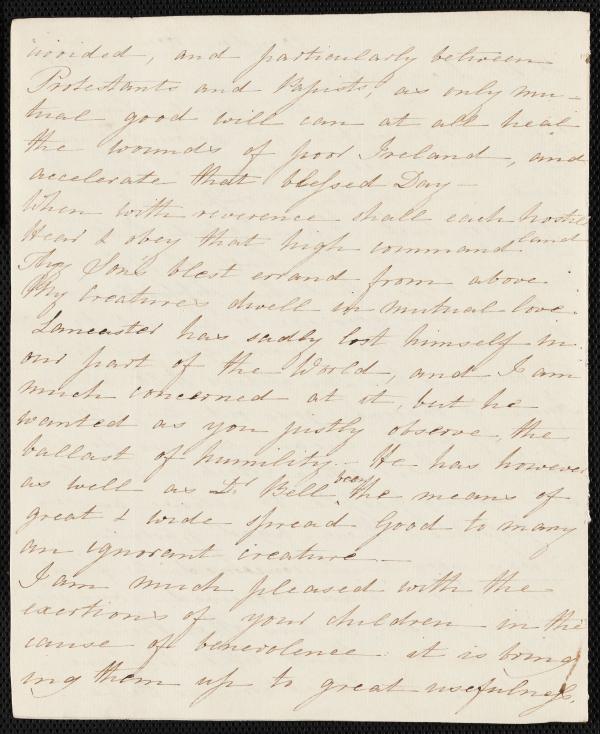 avoided, and particularly between
Protestants and Papists, as only mu-
tual good will can at all heal
the wounds of poor Ireland, and
accelerate that blessed Day —
When with reverence shall each hostile
land
Hear & obey that high command
Thy Son's blest errand from above
Thy Creatures dwell in mutual love.
Lancaster has sadly lost himself in
our part of the World, and I am
much concerned at it, but he
wanted as you justly observe, the
ballast of humility — He has however
as well as Dr Bell been the means of
great & wide spread Good to many
an ignorant creature —
I am much pleased with the
exertions of your children in the
cause of benevolence it is bring
ing them up to great usefulness.